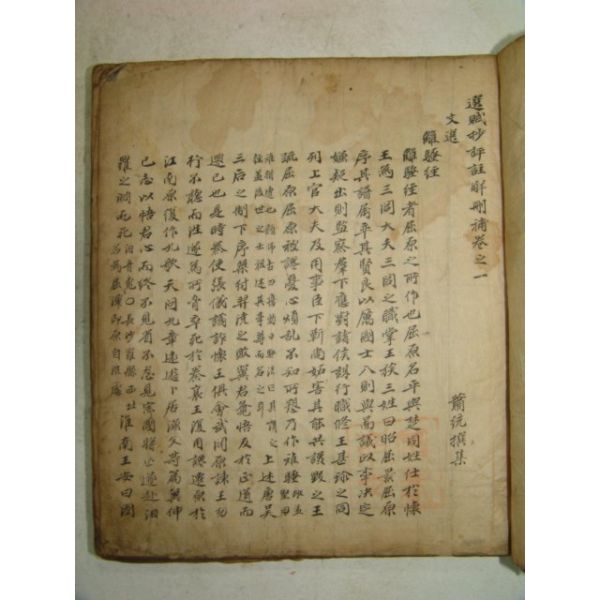 選賦抄評註解刪補卷之一
文選　蕭統撰集
離騷經
離騷經者屈原之所作也屈原名平與楚同姓仕於懷
王爲三閭大夫三閭之職掌王族三姓曰昭屈景屈原
序其譜屬率其賢良以厲國士入則與王議以事決定
嫌疑出則監察羣下應對諸侯謀行職修王甚珍之同
列上官大夫及用事臣下靳尚妬害其能共譖毀之王
疏屈原屈原被讒憂心煩亂不知所愬乃作離騷
上述唐虞
三后之制下序桀紂羿澆之敗冀君覺悟反於正道而
還己也是時秦使張儀譎詐懷王俱會武關原諫王勿
行不聽而往遂爲所脅卒死於秦襄王復用讒遷原於
江南原復作九歌天問九章遠遊卜居漁父等篇冀伸
己志以悟君心而終不見省不忍見宗國將亡遂赴汨
羅之淵而死
淮南王安曰國